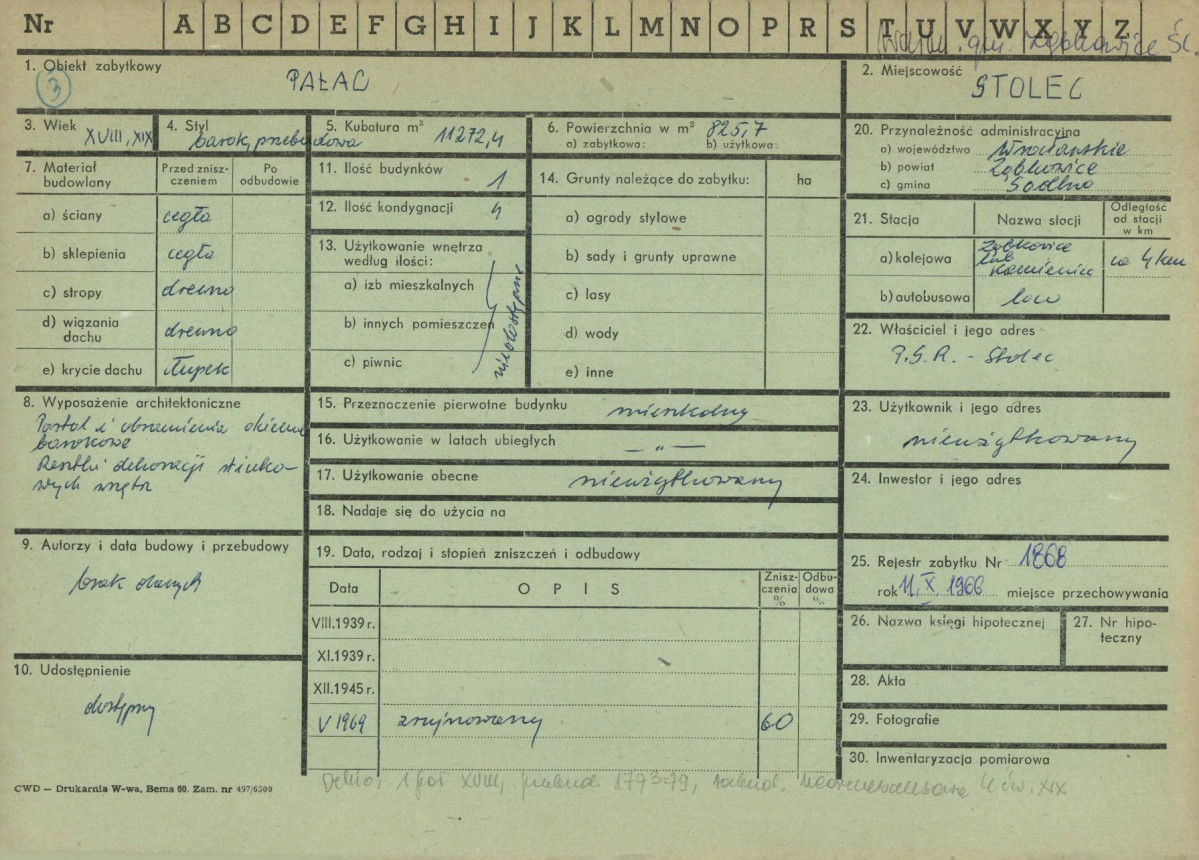 Nr A B C D E F G H I J K L M N O P R S T U V W X Y Z
gm. Ząbkowice Śl.
1. Obiekt zabytkowy
3
PAŁAC
2. Miejscowość
STOLEC
3. Wiek
XVIII, XIX
4. Styl
barok, przebudowa
5. Kubatura m³
11272,4
6. Powierzchnia w m³ 825,7
a) zabytkowa: b) użytkowa:
7. Materiał budowlany
Przed znisz-
czeniem
Po
odbudowie
a) ściany cegła
b) sklepienia cegła
c) stropy drewno
d) wiązania
dachu drewno
e) krycie dachu łupek
8. Wyposażenie architektoniczne
Portal i obramienia okienne
barokowe
Resztki dekoracji stiuko-
wych wnętrz
9. Autorzy i data budowy i przebudowy
brak danych
10. Udostępnienie
dostępny
11. Ilość budynków
1
12. Ilość kondygnacji 4
13. Użytkowanie wnętrza
według ilości:
a) izb mieszkalnych
b) innych pomieszczeń
c) piwnic
niedostępne
14. Grunty należące do zabytku: ha
a) ogrody stylowe
b) sady i grunty uprawne
c) lasy
d) wody
e) inne
15. Przeznaczenie pierwotne budynku mieszkalny
16. Użytkowanie w latach ubiegłych — „ —
17. Użytkowanie obecne nieużytkowany
18. Nadaje się do użycia na
19. Data, rodzaj i stopień zniszczeń i odbudowy
Data O P I S Znisz-
czenia
%
Odbu-
dowa
%
VIII.1939 r.
XI.1939 r.
XII.1945 r.
V 1969 zrujnowany 60
20. Przynależność administracyjna
a) województwo Wrocławskie
b) powiat Ząbkowice
c) gmina Sadlno
21. Stacja Nazwa stacji Odległość
od stacji
w km
a) kolejowa Ząbkowice
lub
Kamieniec
ca 4 km
b) autobusowa loco
22. Właściciel i jego adres
P.G.R. - Stolec
23. Użytkownik i jego adres
nieużytkowany
24. Inwestor i jego adres
25. Rejestr zabytku Nr 1868
rok 11.X.1966 miejsce przechowywania
26. Nazwa księgi hipotecznej
27. Nr hipo-
teczny
28. Akta
29. Fotografie
30. Inwentaryzacja pomiarowa
1 poł XVIII, przebud. 1793-79, rozbud. neorenesansowa 4 ćw. XIX
CWD — Drukarnia W-wa, Bema 60. Zam. nr 497/6500